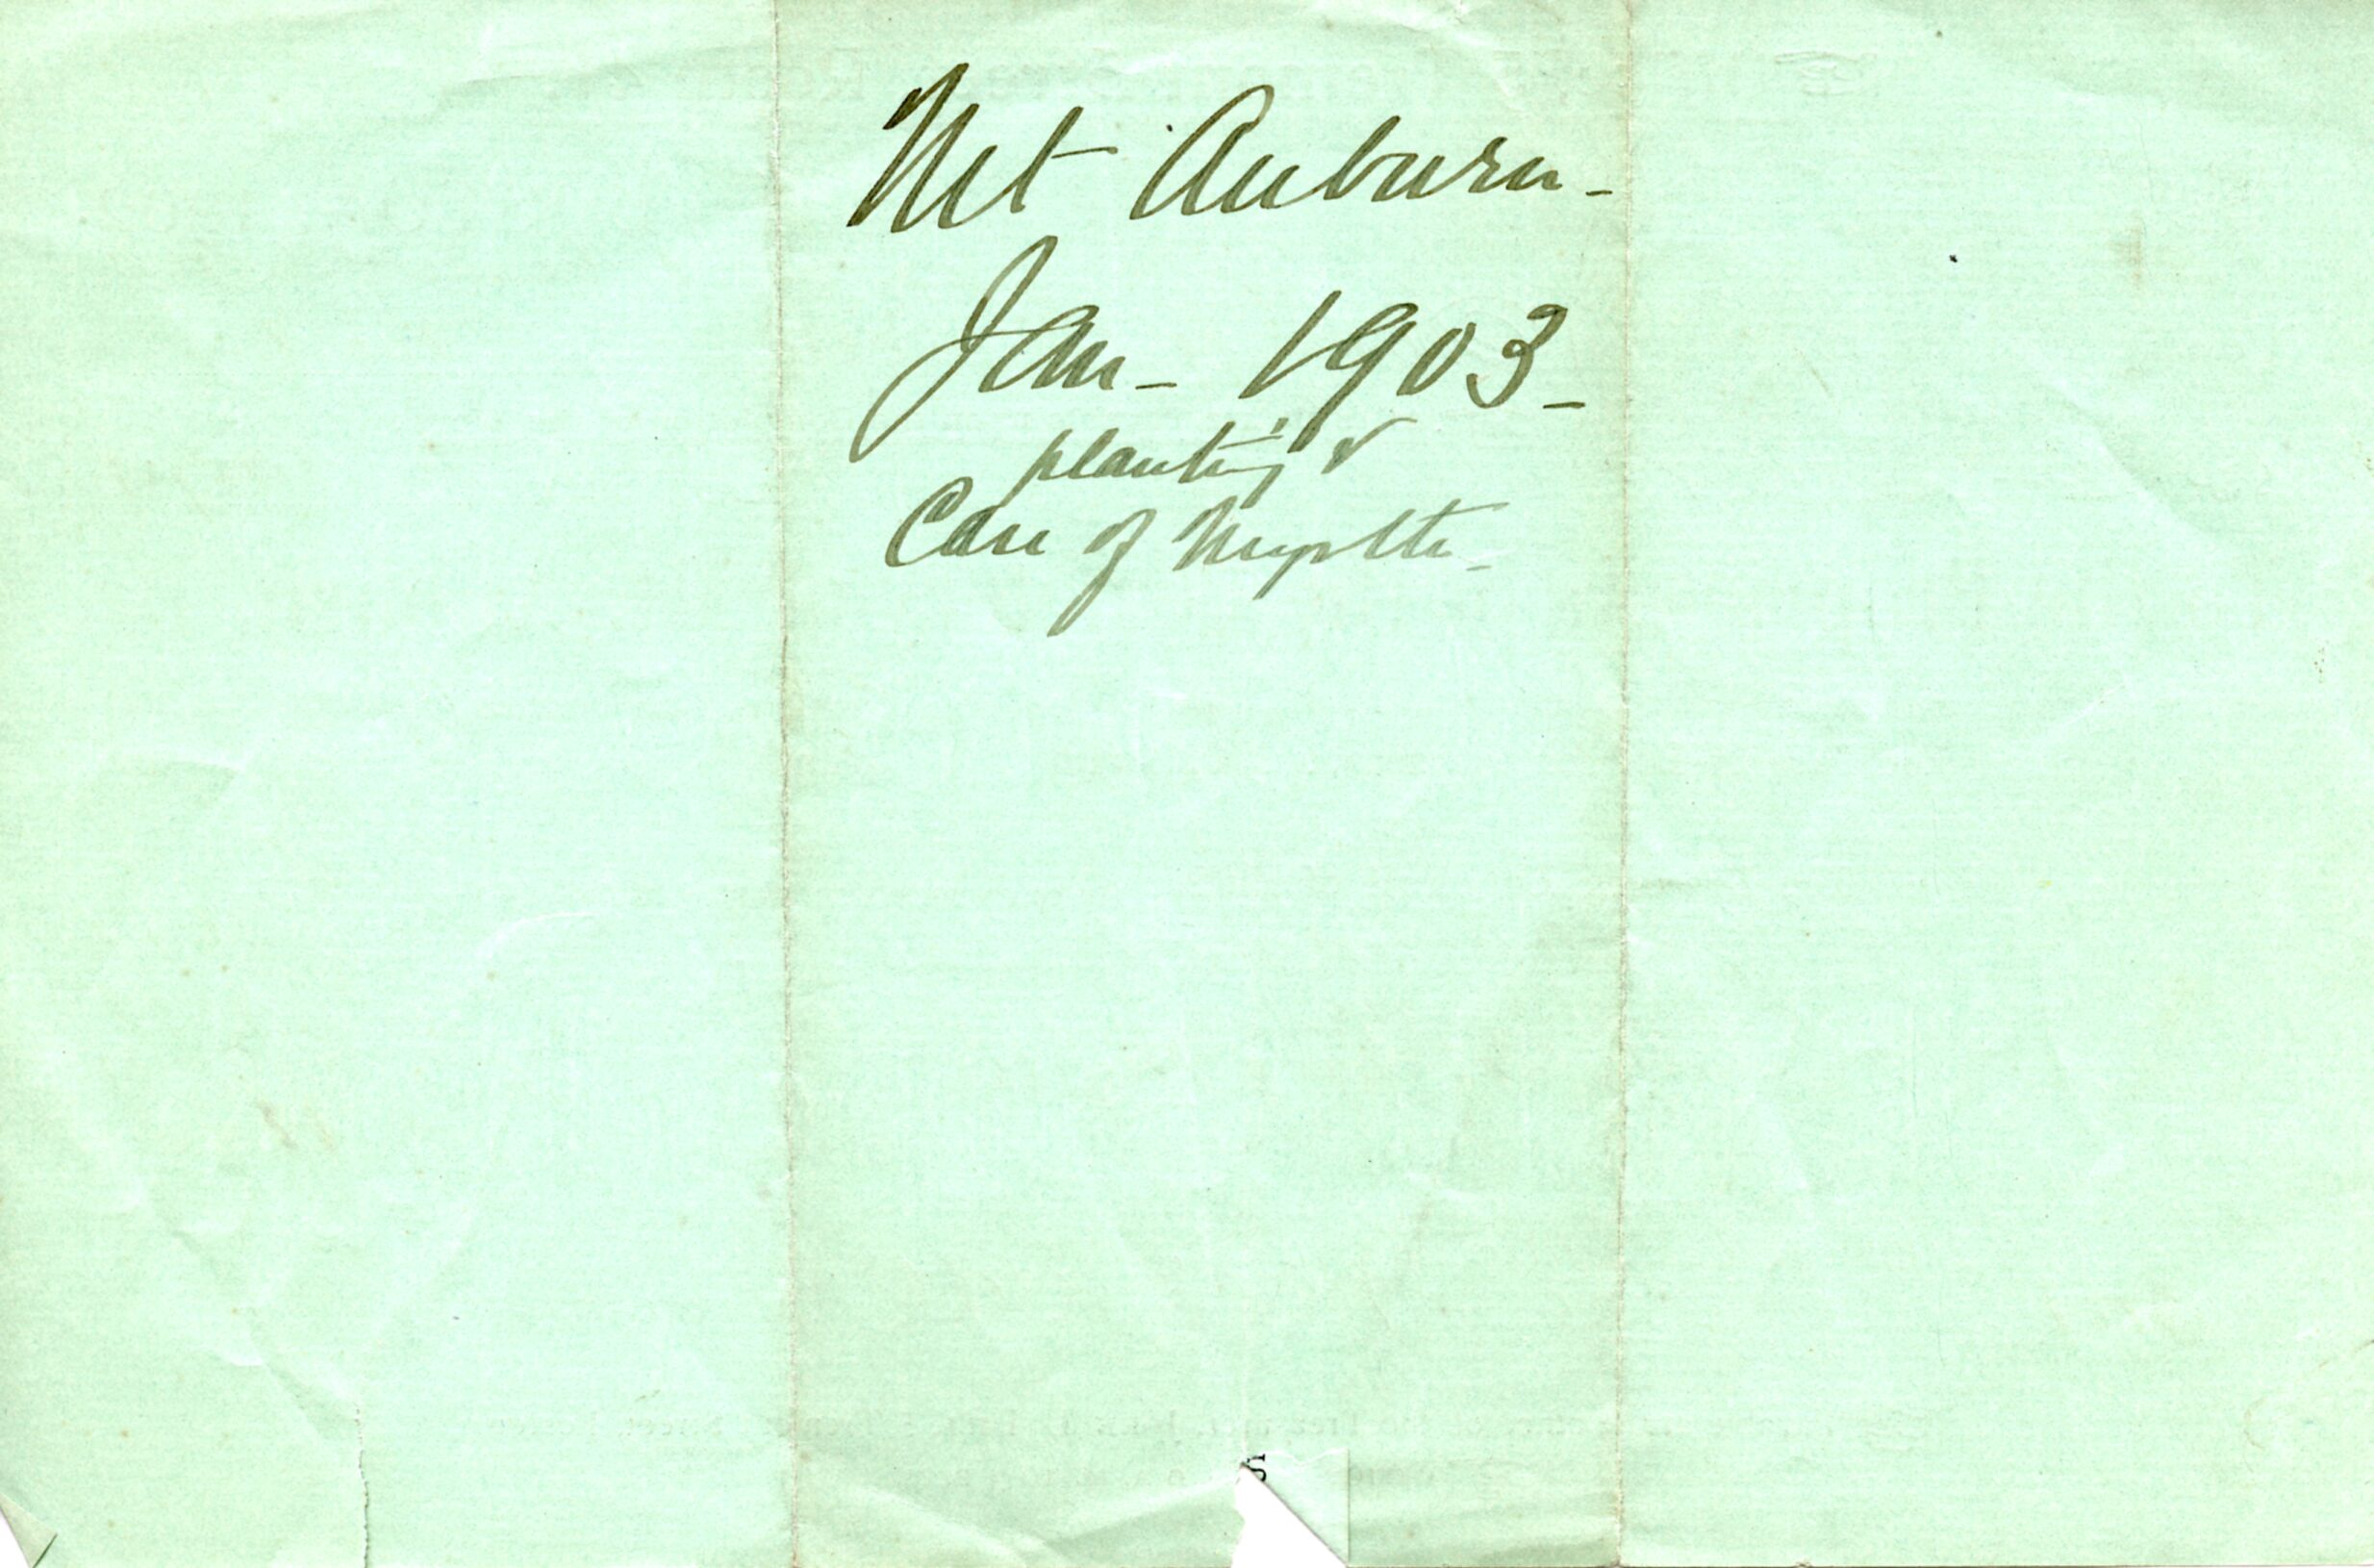 Mt Auburn -
Jan - 1903 -
planting &
Care of Myrtle -